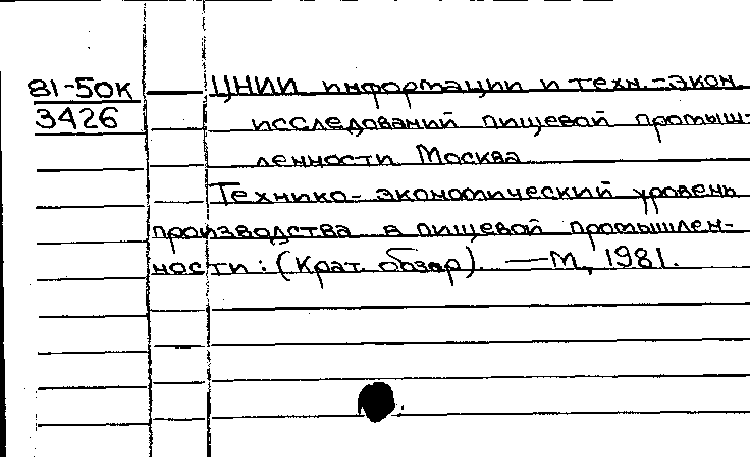 81-50к ЦНИИ информации и техн.-экон.
3426 исследований пищевой промыш-
ленности Москва
Технико-экономический уровень
производства в пищевой промышлен-
ности: (Крат. обзор). — М., 1981.